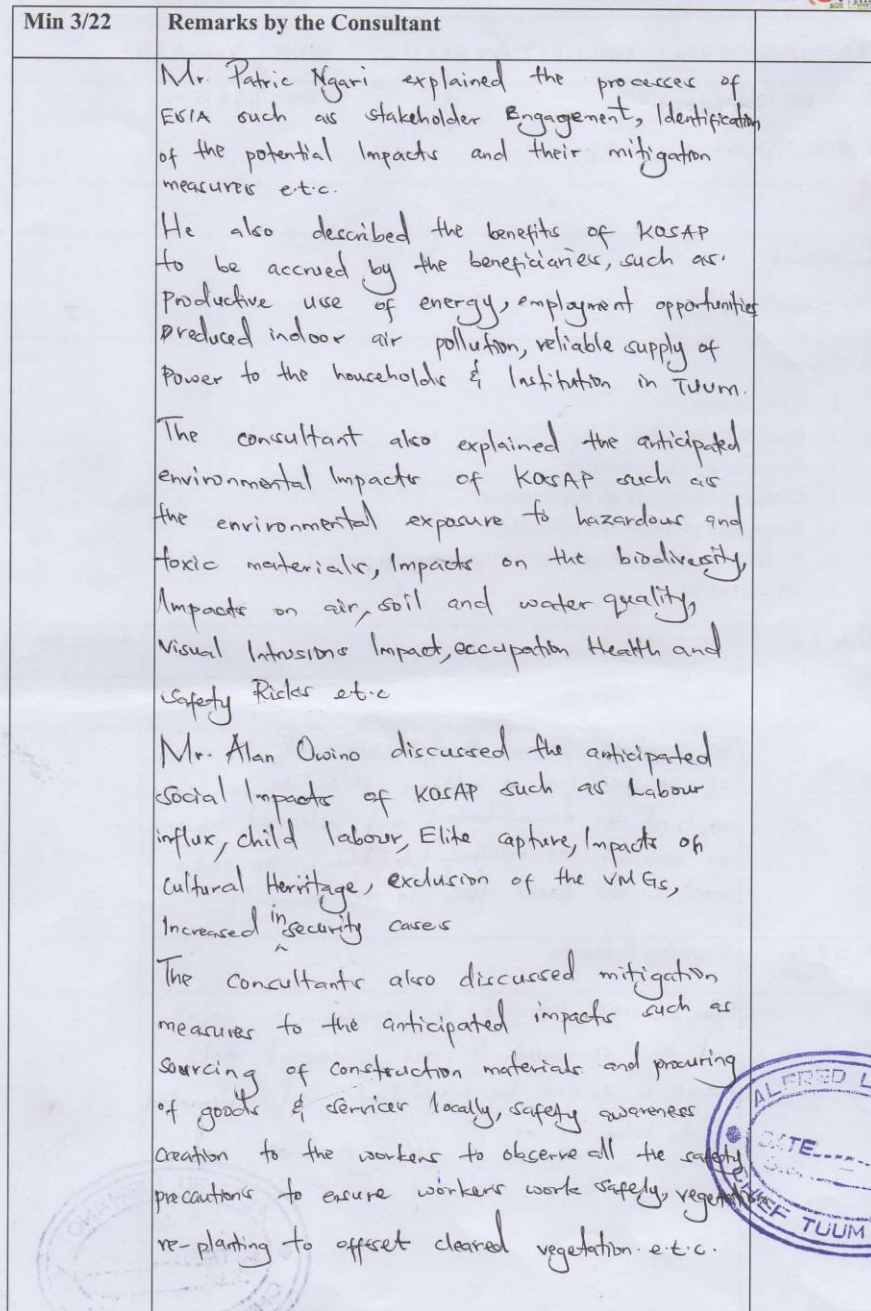 Min 3/22 Remarks by the Consultant
Mr. Patric Ngari explained the processes of
ESIA such as stakeholder Engagement, Identification
of the potential Impacts and their mitigation
measures e.t.c.
He also described the benefits of KOSAP
to be accrued by the beneficiaries, such as.
Productive use of energy, employment opportunities
reduced indoor air pollution, reliable supply of
Power to the households & Institution in TUUM.
The consultant also explained the anticipated
environmental Impacts of KOSAP such as
the environmental exposure to hazardous and
toxic materials, Impacts on the biodiversity,
Impacts on air, soil and water quality,
Visual Intrusions Impact, occupation Health and
safety Risks e.t.c
Mr. Alan Owino discussed the anticipated
social Impacts of KOSAP such as Labour
influx, child labour, Elite capture, Impacts on
Cultural Herritage, exclusion of the VMGs,
Increased insecurity cases
The consultants also discussed mitigation
measures to the anticipated impacts such as
sourcing of construction materials and procuring
of goods & services locally, safety awareness
creation to the workers to observe all the safety
precautions to ensure workers work safely, vegetation
re-planting to offset cleared vegetation. e.t.c.
ALFRED L
DATE
CHIEF TUUM